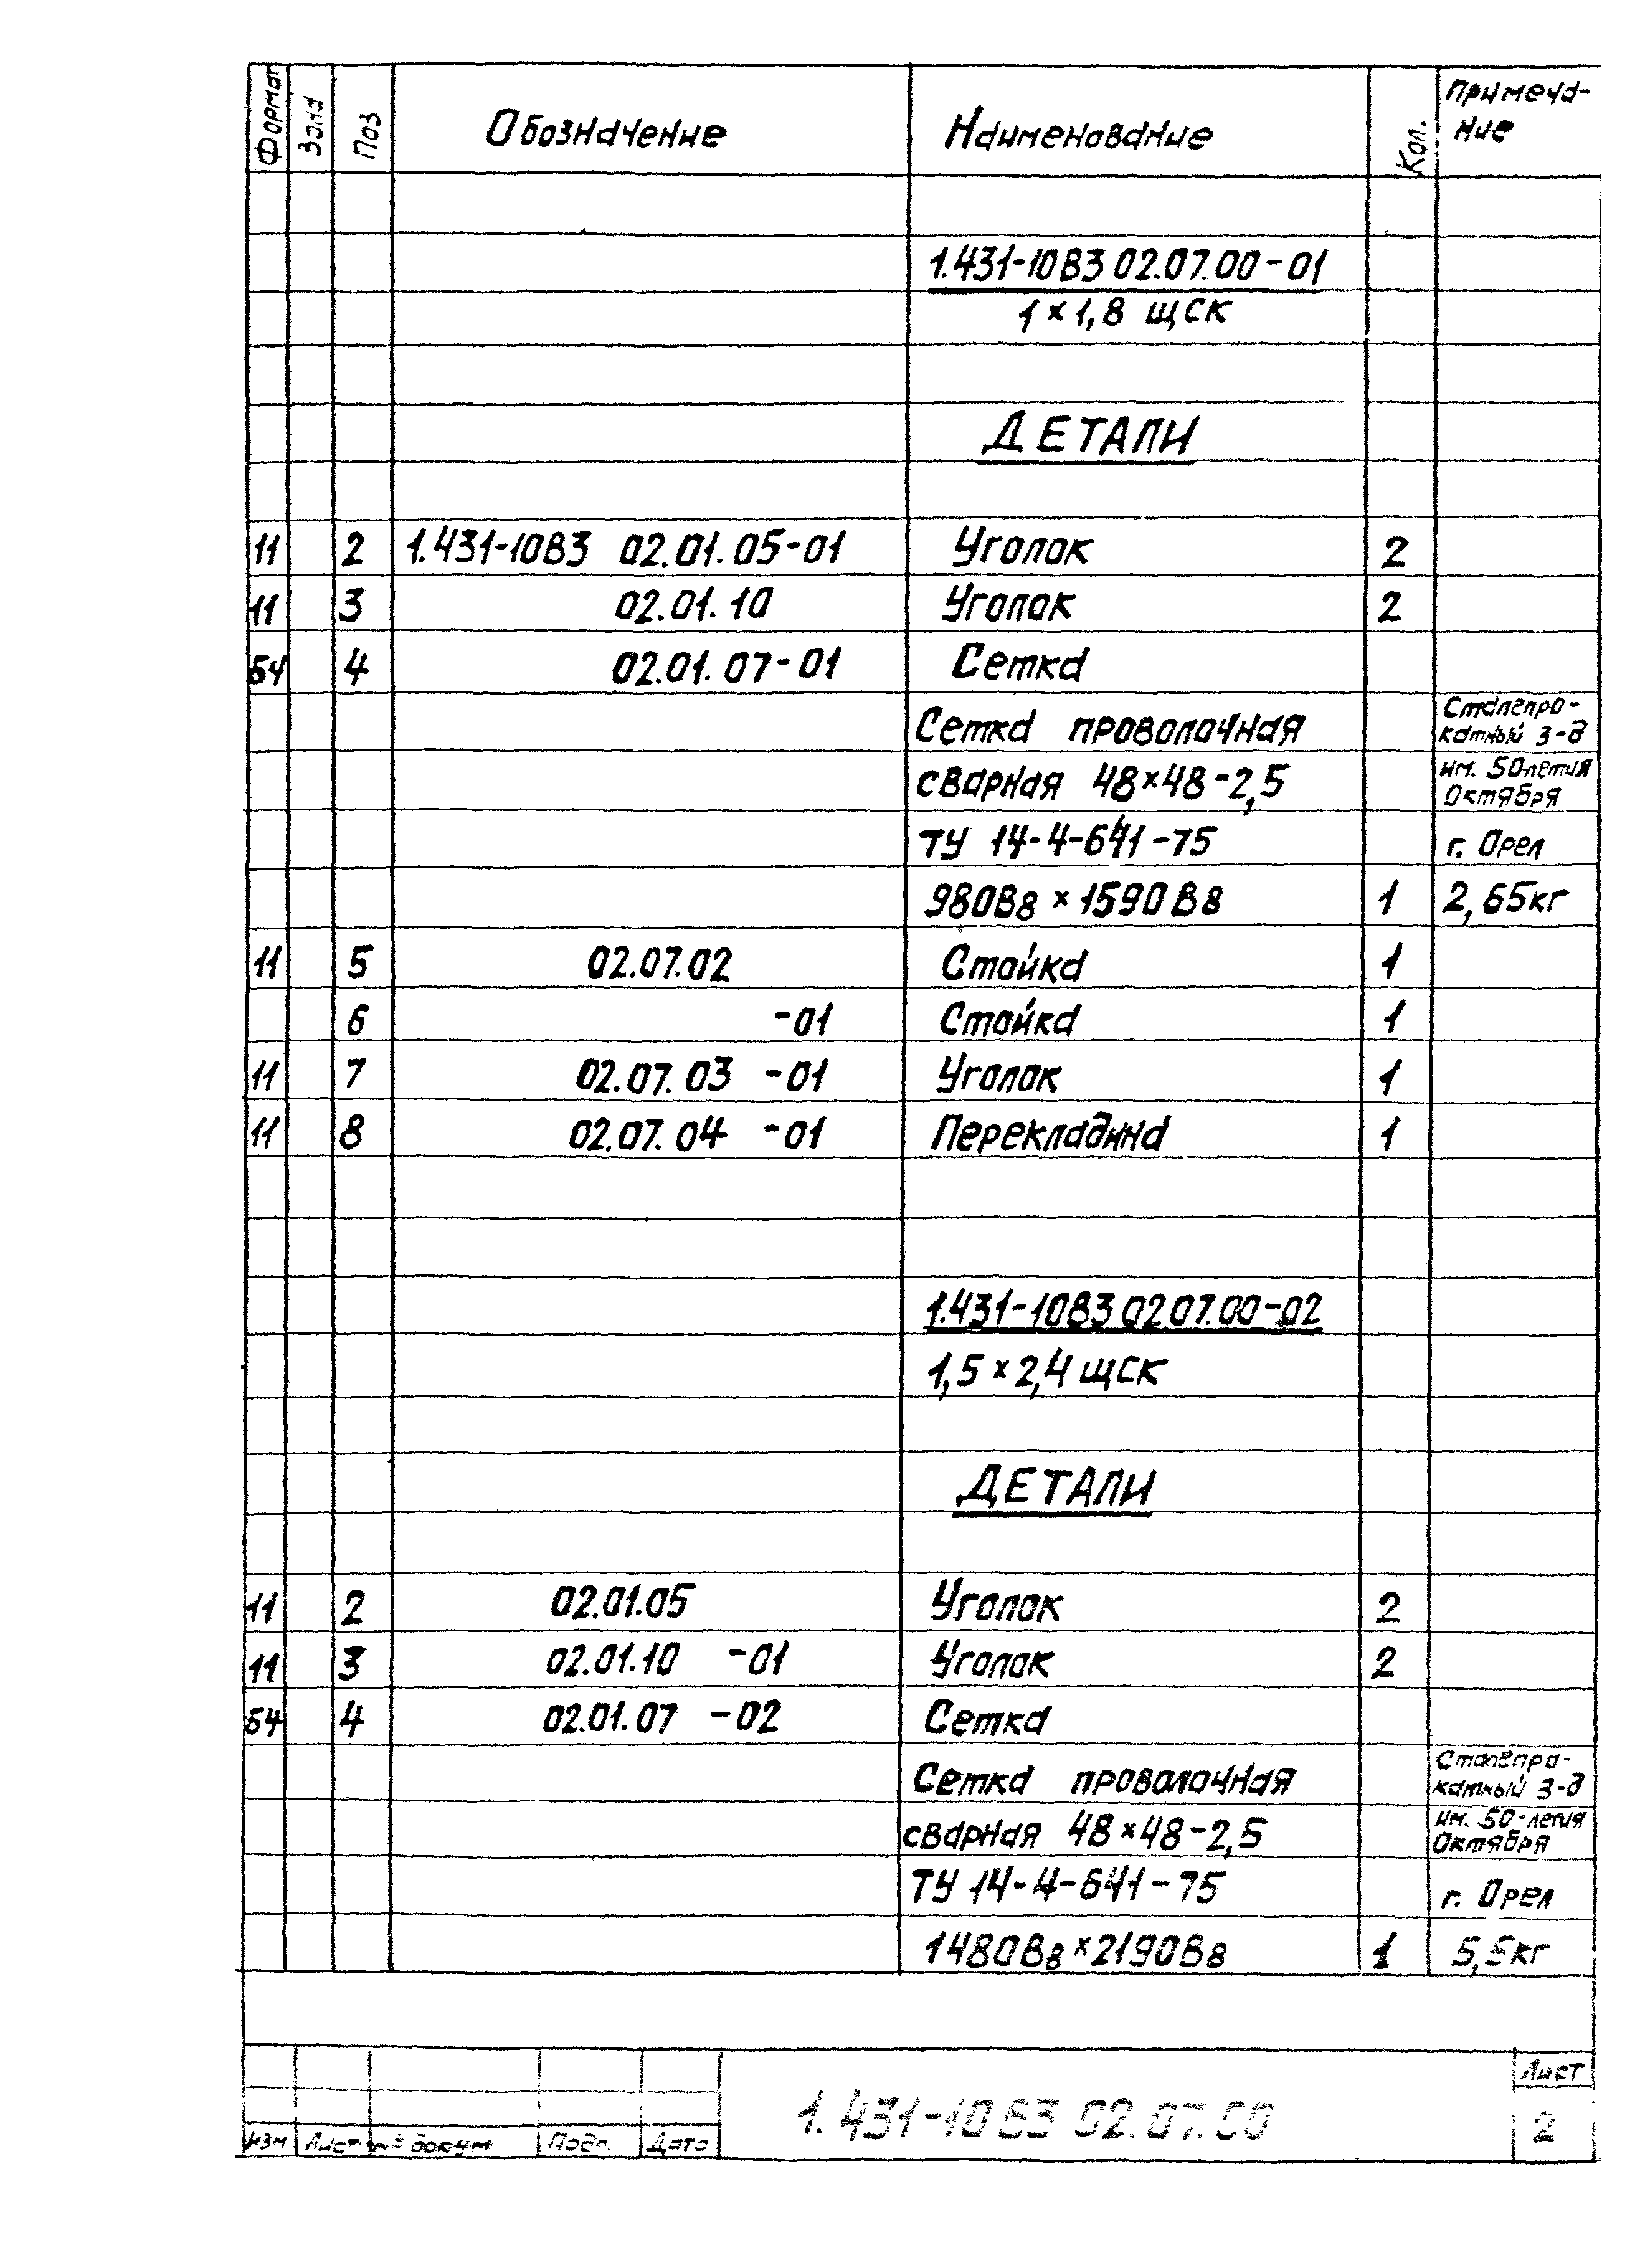 Формат Зона Поз Обозначение Наименование Кол. Примеча-
ние
1.431-10В3 02.07.00-01
1×1,8 щск
ДЕТАЛИ
11 2 1.431-10В3 02.01.05-01 Уголок 2
11 3 02.01.10 Уголок 2
БЧ 4 02.01.07-01 Сетка
Сетка проволочная Сталепро-
катный з-д
сварная 48×48-2,5 им. 50летия
Октября
ТУ 14-4-641-75 г. Орел
980В8×1590В8 1 2,65кг
11 5 02.07.02 Стойка 1
6 -01 Стойка 1
11 7 02.07.03 -01 Уголок 1
11 8 02.07.04 -01 Перекладина 1
1.431-10В3 02 07.00-02
1,5×2,4 щск
ДЕТАЛИ
11 2 02.01.05 Уголок 2
11 3 02.01.10 -01 Уголок 2
БЧ 4 02.01.07 -02 Сетка
Сетка проволочная Сталепро-
катный з-д
сварная 48×48-2,5 им. 50-летия
Октября
ТУ 14-4-641-75 г. Орел
1480В8×2190В8 1 5,5кг
Изм Лист № докум Подп. Дата 1.431-10В3 02.07.00 Лист
2